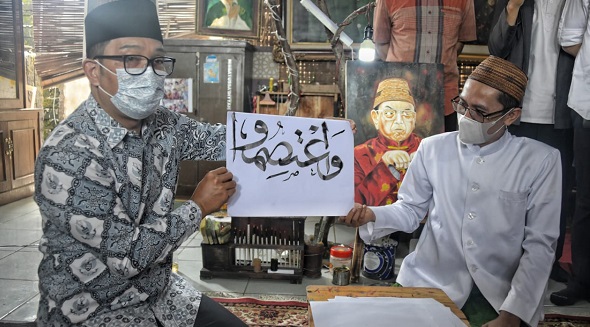 وَاعْتَصِمُوا